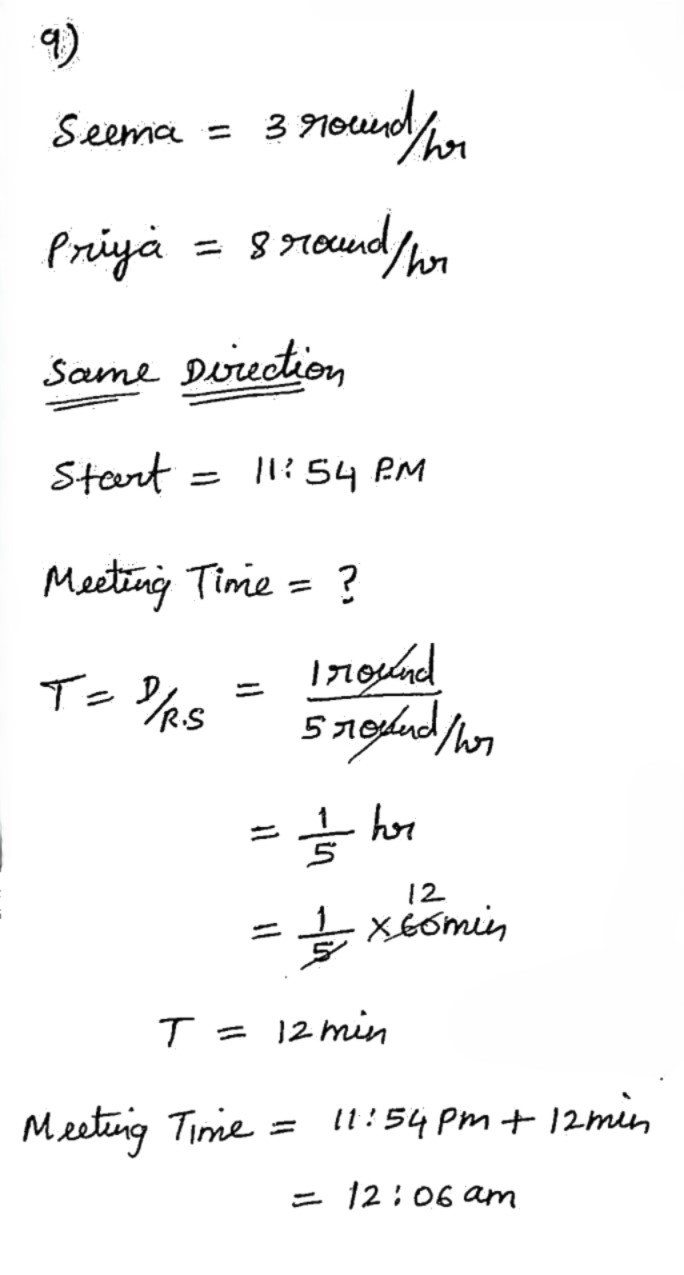 9)
Seema = 3 round/hr
Priya = 8 round/hr
Same Direction
Start = 11:54 P.M
Meeting Time = ?
T = D/R.S = 1 round / 5 round/hr
= 1/5 hr
= 1/5 × 60 min 12
T = 12 min
Meeting Time = 11:54 pm + 12 min
= 12:06 am